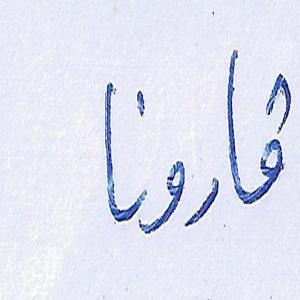 ڤارونا